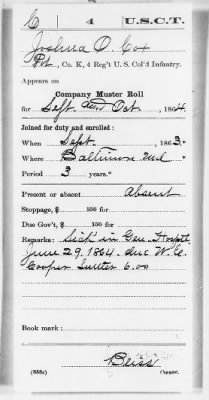 C | 4 | U.S.C.T.
Joshua O. Cox
Pvt, Co. K, 4 Reg't U. S. Col'd Infantry.
Appears on
Company Muster Roll
for Sept. and Oct., 1864.
Joined for duty and enrolled:
When Sept., 1863.*
Where Baltimore Md
Period 3 years.*
Present or absent Absent
Stoppage, $ 100 for
Due Gov't, $ 100 for
Remarks: Sick in Gen. Hospital
June 29. 1864. due W. C.
Cooper Sutler 6.00
Book mark:
Beiss
(858c) Copyist.